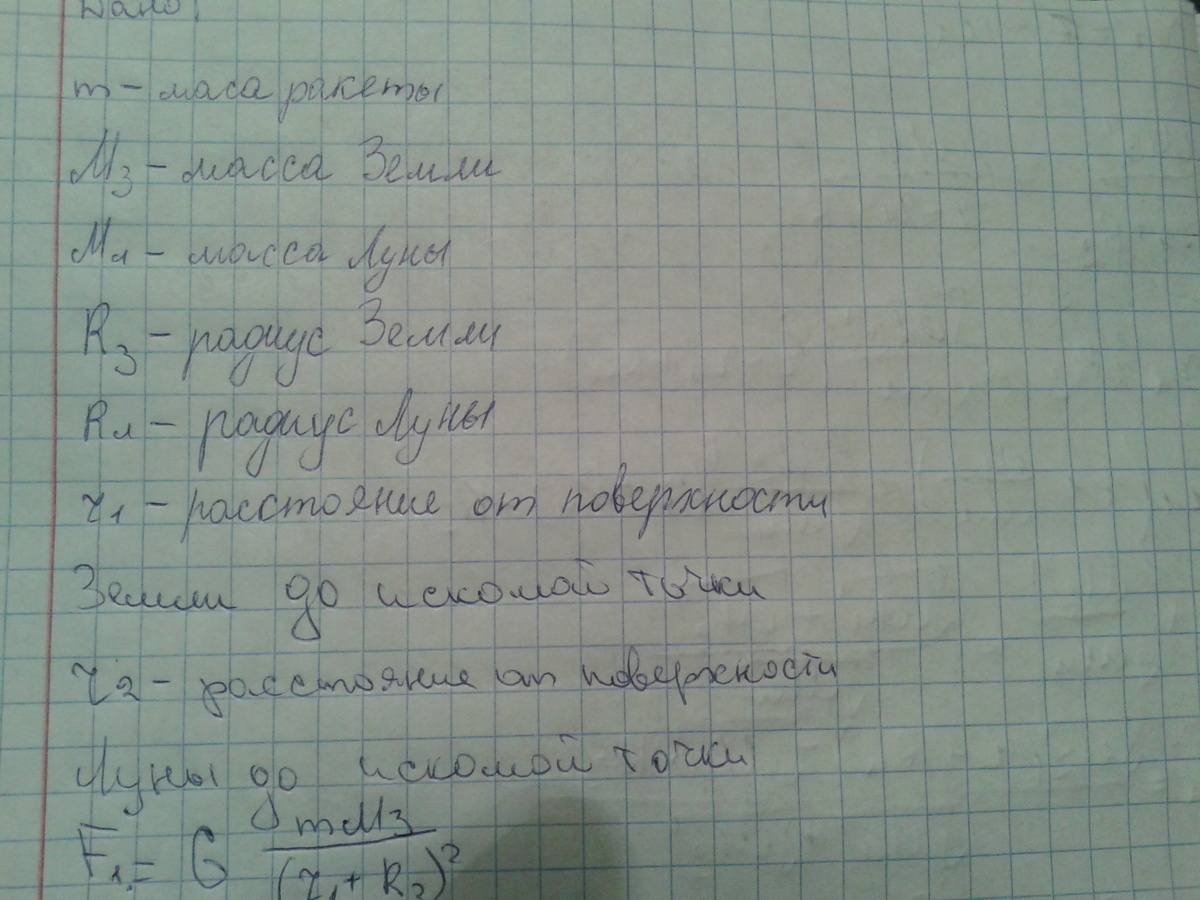 Дано:
m – маса ракеты
Mз – масса Земли
Mл – масса Луны
Rз – радиус Земли
Rл – радиус Луны
r1 – расстояние от поверхности
Земли до искомой точки
r2 – расстояние от поверхности
Луны до искомой точки
F1 = G mMз / (r1 + Rз)²